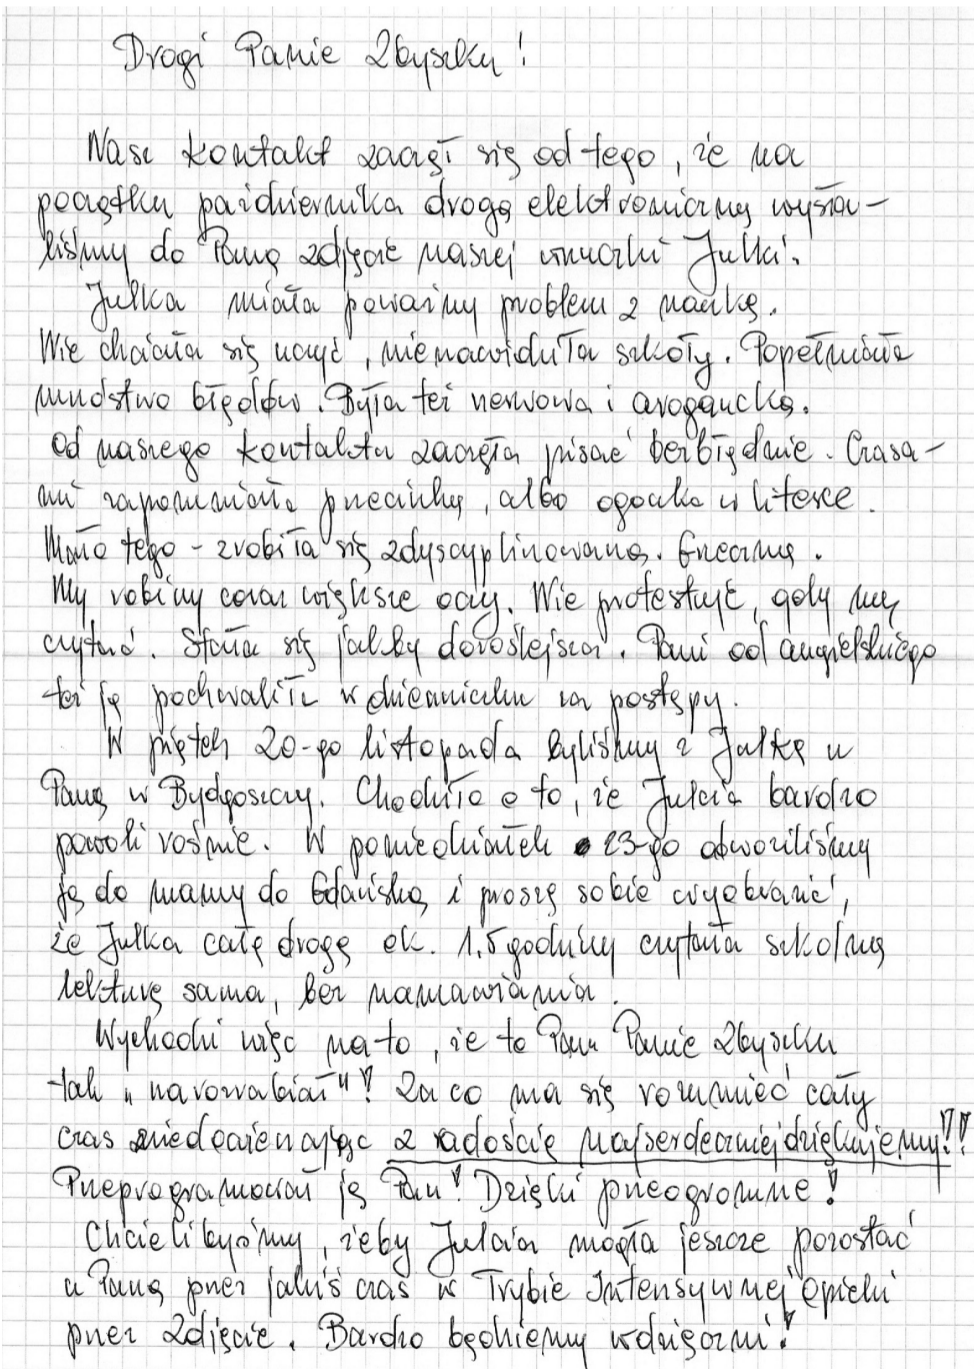 Drogi Panie Zbyszku!
Nasz kontakt zaczął się od tego, że na
początku października drogą elektroniczną wysła-
liśmy do Pana zdjęcie naszej wnuczki Julki.
Julka miała poważny problem z nauką.
Nie chciała się uczyć, nienawidziła szkoły. Popełniała
mnóstwo błędów. Była też nerwowa i arogancka.
Od naszego kontaktu zaczęła pisać bezbłędnie. Czasa-
mi zapomniała przecinka, albo ogonka w literce.
Mało tego - zrobiła się zdyscyplinowana. Grzeczna.
My robimy coraz większe oczy. Nie protestuje, gdy ma
czytać. Stała się jakby doroślejsza. Pani od angielskiego
też ją pochwaliła w dzienniczku za postępy.
W piątek 20-go listopada byliśmy z Julką u
Pana w Bydgoszczy. Chodziło o to, że Julcia bardzo
powoli rośnie. W poniedziałek 23-go odwoziliśmy
ją do mamy do Gdańska i proszę sobie wyobrazić,
że Julka całą drogę ok. 1,5 godziny czytała szkolną
lekturę sama, bez namawiania.
Wychodzi więc na to, że to Pan Panie Zbyszku
tak "narozrabiał"! Za co ma się rozumieć cały
czas niedoceniając z radością najserdeczniej dziękujemy!!!
Przeprogramował ją Pan! Dzięki przeogromne!
Chcielibyśmy, żeby Julcia mogła jeszcze pozostać
u Pana przez jakiś czas w Trybie Intensywnej Opieki
przez Zdjęcie. Bardzo będziemy wdzięczni!